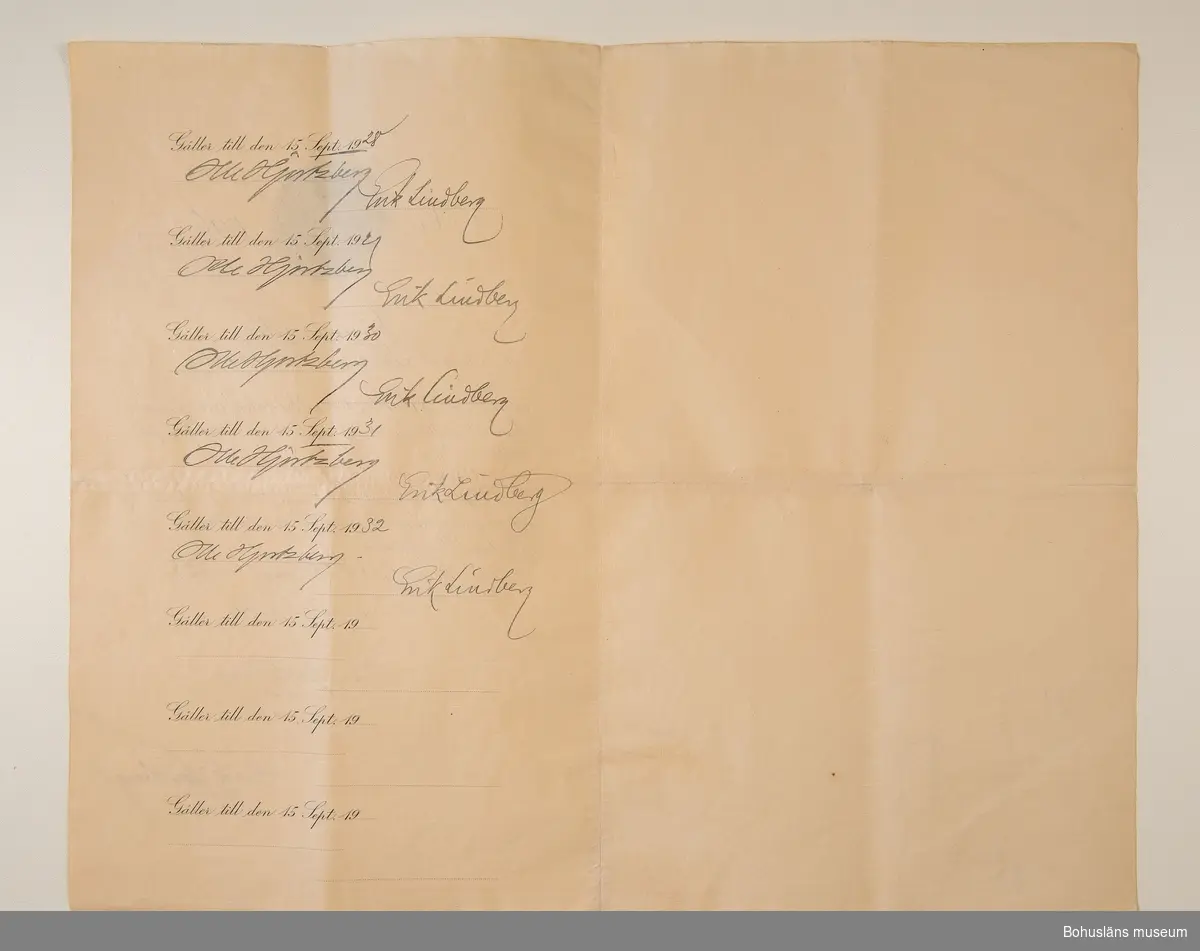 Gäller till den 15 Sept. 1928
Olle Hjortzberg
Erik Lindberg
Gäller till den 15 Sept. 1929
Olle Hjortzberg
Erik Lindberg
Gäller till den 15 Sept. 1930
Olle Hjortzberg
Erik Lindberg
Gäller till den 15 Sept. 1931
Olle Hjortzberg
Erik Lindberg
Gäller till den 15 Sept. 1932
Olle Hjortzberg
Erik Lindberg
Gäller till den 15 Sept. 19
Gäller till den 15 Sept. 19
Gäller till den 15 Sept. 19
Bohusläns museum